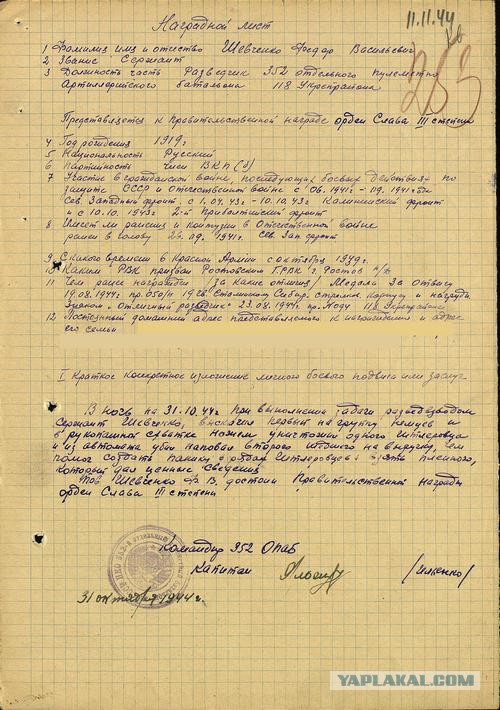 Наградной лист
11.11.44
1 Фамилия имя и отчество Шевченко Федор Васильевич
2 Звание Сержант
3 Должность часть Разведчик 352 отдельного пулеметно
Артиллерийского батальона 118 Укрепрайона
Представляется к Правительственной награде орден Слава III степени
4 Год рождения 1919 г
5 Национальность Русский
6 Партийность член ВКП(б)
7 Участие в гражданской войне, последующих боевых действиях по
защите СССР и отечественной войне с 06.1941 - 09.1941
Сев. Западный фронт, с 1.04.43 - 10.10.43 Калининский фронт
и с 10.10.1943 2-й Прибалтийский фронт
8 Имеет ли ранения и контузии в Отечественной войне
ранен в голову 29.09.1941г. Сев. Зап. фронт
9 С какого времени в Красной Армии с октября 1939г.
10 Каким РВК призван Ростовским ГРВК г. Ростов н/Д
11 Чем ранее награжден /за какие отличия/ Медаль За отвагу
19.08.1944г. пр. 050/н 19 гв. Сталинскому Сибир. стрелков. Корпусу и награжд
Знаком "Отличный разведчик" 23.09.1944г. пр. 118 Укрепрайона
12 Постоянный домашний адрес представляемого к награждению и адрес
его семьи
I Краткое конкретное изложение личного боевого подвига или заслуг
В ночь на 31.10.44г при выполнении задачи разведвзводом
Сержант Шевченко, выскочил первый на группу немцев и
в рукопашной схватке ножем уничтожил одного Гитлеровца
и из автомата убил наповал второго шедшего на выручку, чем
помог создать панику в рядах Гитлеровцев и взять пленного,
который дал ценные сведения
Тов Шевченко Ф В. достоин Правительственной Награды
орден Слава III степени
Командир 352 ОПАБ
Капитан /Илженко/
31 октября 1944г.
YAPLAKAL.COM